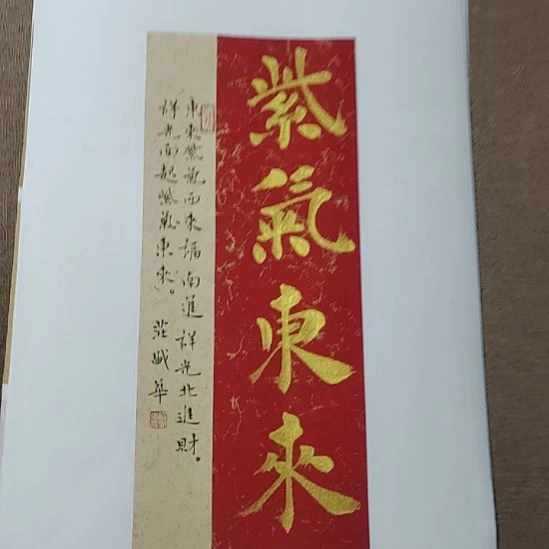 紫氣東來
東來紫氣西來福南進祥光北進財。
祥光西起紫氣東來。
莊
華